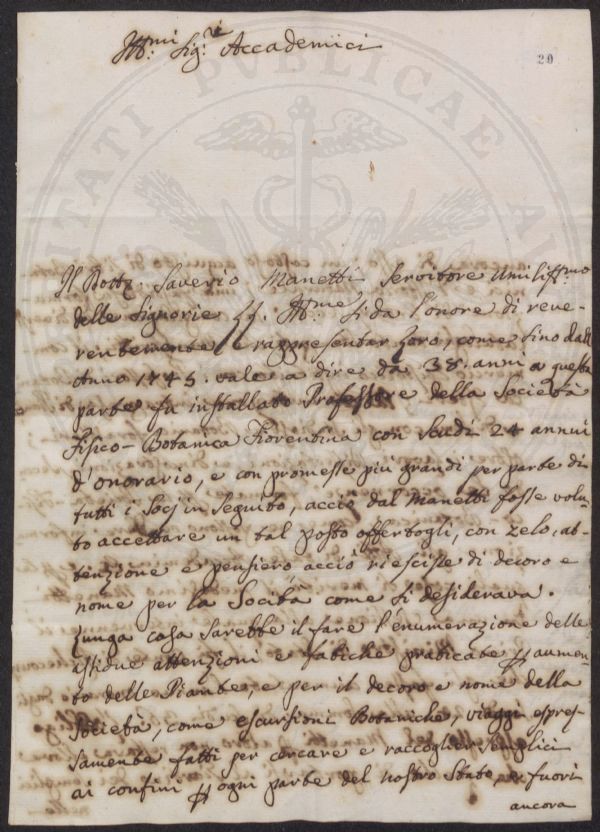 Ill.mi Sig.ri Accademici
20
Il Dottr. Saverio Manetti Servitore Umiliss.mo
delle Signorie LL. Ill.me si da l'onore di reve-
rentemente rappresentar Loro, come sino dall'
Anno 1745. vale a dire da 38. anni a questa
parte fu installato Professore della Società
Fisico-Botanica Fiorentina con Scudi 24 annui
d'onorario, e con promesse più grandi per parte di
tutti i Socj in seguito, acciò dal Manetti fosse volu-
to accettare un tal posto offertogli, con zelo, at-
tenzione e pensiero, acciò riescisse di decoro e
nome per la Società come si desiderava.
Lunga cosa sarebbe il fare l'enumerazione delle
assidue attenzioni e fatiche praticate p aumen-
to delle Piante, e per il decoro e nome della
Società, come escursioni Botaniche, viaggi espres-
samente fatti per cercare e raccoglier Semplici
ai confini p ogni parte del nostro Stato, e fuori
ancora